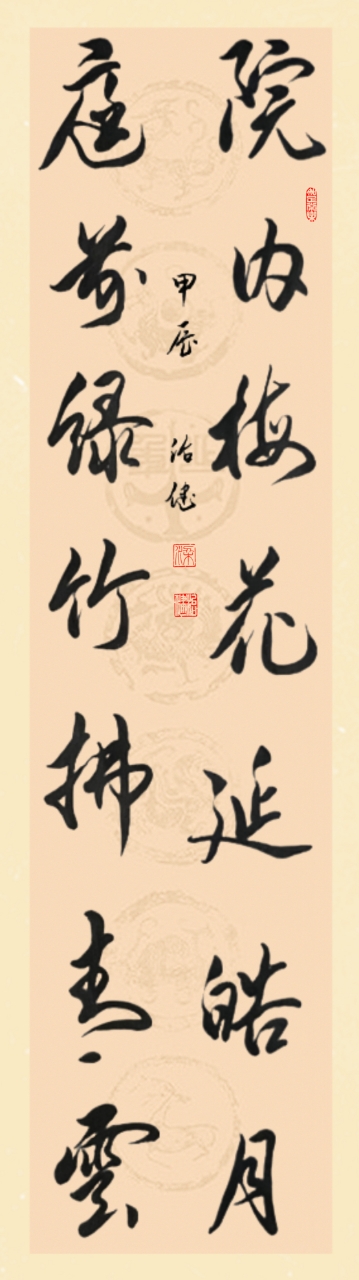 院内梅花延皓月
庭前绿竹拂青雲
甲辰
治健